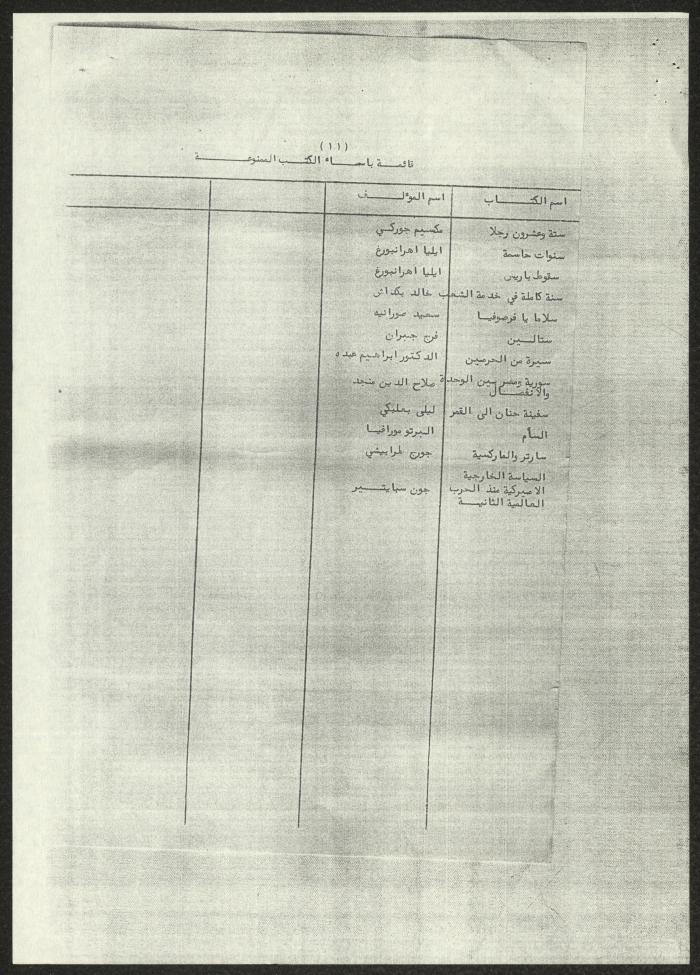 (١١)
قائمـــة باسمـــاء الكتـــب الممنوعـــة
اسم الكتـــاب اسم المؤلـــف
ستة وعشرون رجلا مكسيم جوركـي
سنوات حاسمة ايليا اهرانبورغ
سقوط باريس ايليا اهرانبورغ
سنة كاملة في خدمة الشعب خالد بكداش
سلاما يا فرصوفيـا سعيد حورانيه
ستالـــين فرج جبران
سيرة من الحرمين الدكتور ابراهيم عبده
سورية ومصر بين الوحدة صلاح الدين منجد
والانفصـــال
سفينة حنان الى القمر ليلى بعلبكي
السأم البرتو مورافيـا
سارتر والماركسية جورج طرابيشي
السياسة الخارجية
الاميركية منذ الحرب جون سبايتـــر
العالمية الثانيـــة